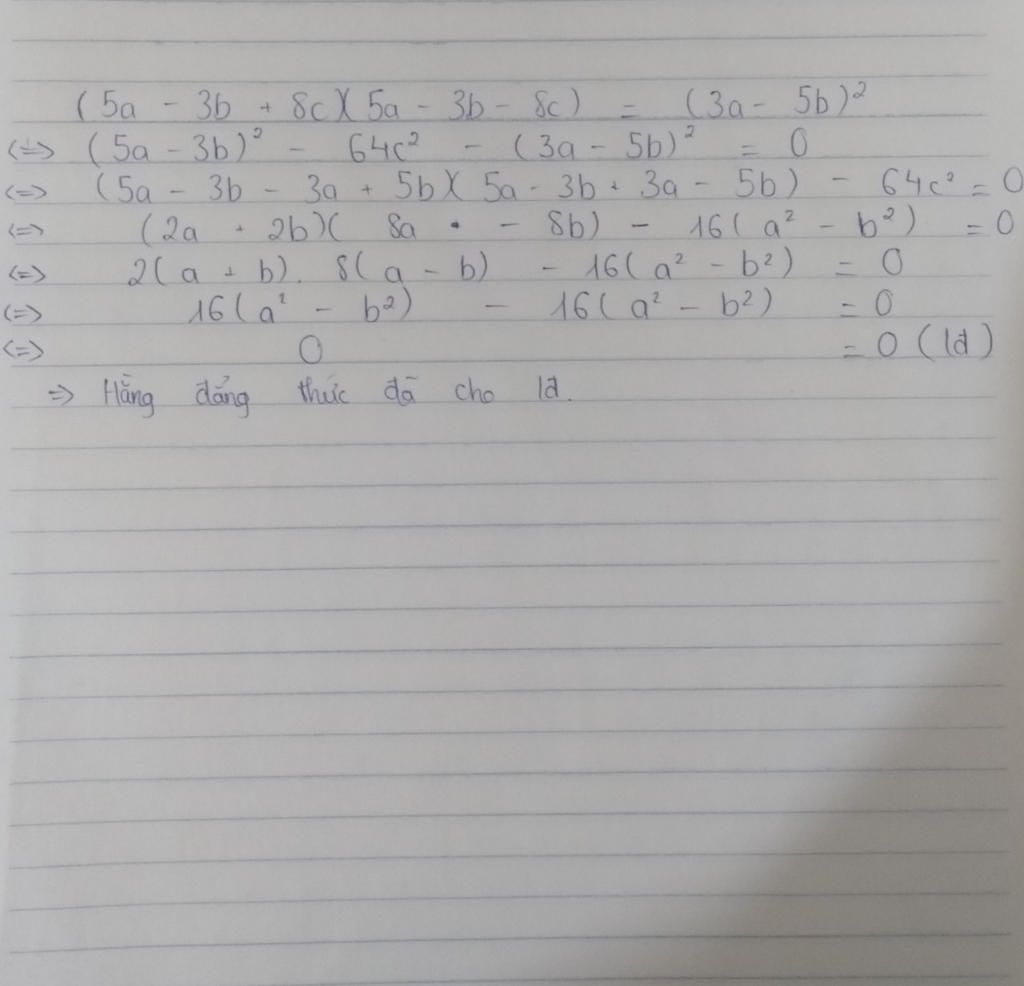 (5a - 3b + 8c)(5a - 3b - 8c) = (3a - 5b)²
<=> (5a - 3b)² - 64c² - (3a - 5b)² = 0
<=> (5a - 3b - 3a + 5b)(5a - 3b + 3a - 5b) - 64c² = 0
<=> (2a + 2b)(8a - 8b) - 16(a² - b²) = 0
<=> 2(a + b). 8(a - b) - 16(a² - b²) = 0
<=> 16(a² - b²) - 16(a² - b²) = 0
<=> 0 = 0 (lđ)
=> Hằng đẳng thức đã cho lđ.